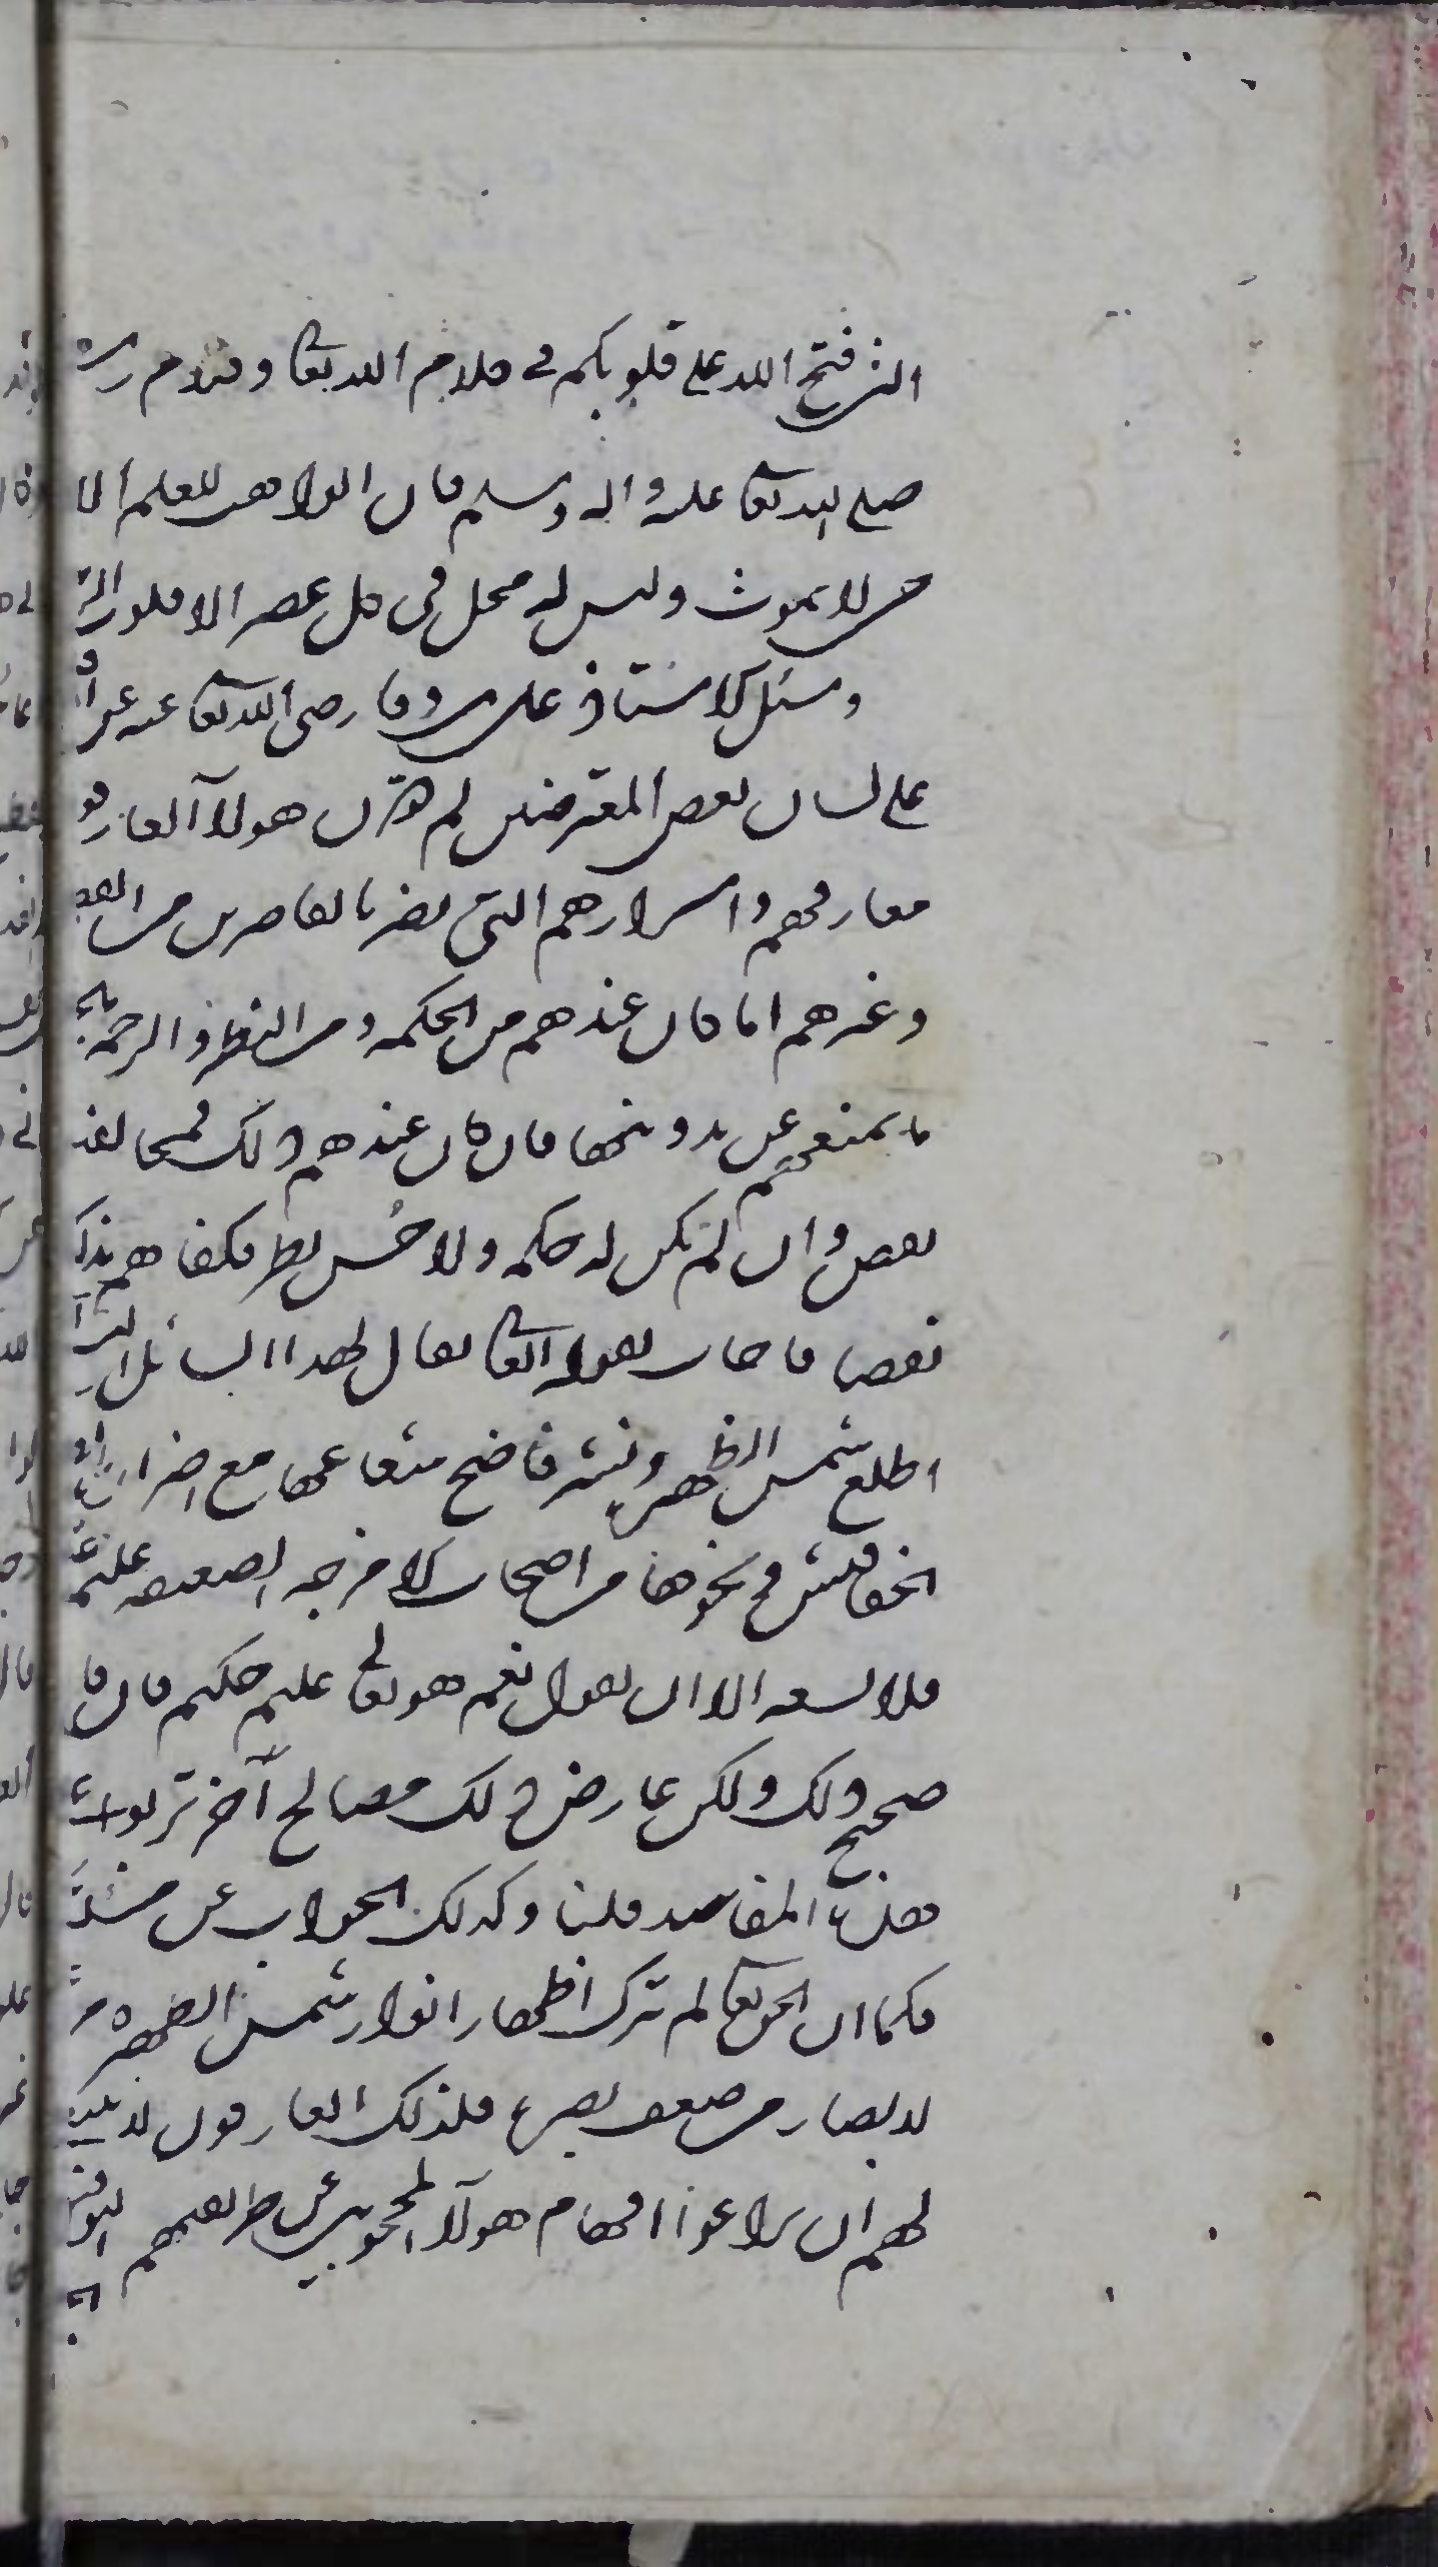 الذى فتح الله على قلوبكم فى كلام الله تعا وكلام رسو
صلى الله تعا عليه واله وسلم فان الواهب للعلم الا
حى لا يموت وليس له محل فى كل عصر الا قلوب الر
وسئل الاستاذ على بن وفا رضى الله تعا عنه عن
على لسان بعض المعترضين لم دون هولاآ العارفو
معارفهم واسرارهم التى تضر بالقاصرين من الفقها
وغيرهم اما كان عندهم من الحكمه ومن النظر والرحمة
ما يمنعهم عن تدوينها فان كان عندهم ذلك فمخالفته
نقص وان لم تكن له حكمه ولا حسن نظر فكفا هم بذلك
نقصا فاجاب بقوله تعا يقال لهذا السائل اليس
اطلع شمس الظهيرة ونشر فاضح شعاعها مع اضراره
الخفافيش ونحوها من اصحاب الامزجه الضعيفه عليم
فلا يسعه الا ان يقول نعم هو تعالى عليم حكيم فان قا
صحيح ذلك ولكن عارض ذلك مصالح آخر تربوا
هذه المفاسد قلنا وكذلك الجواب عن
فكما ان الحق تعا لم يترك اظهار انوار شمس الظهيرة
لابصار من ضعف بصره فلذلك العارفون لا ينبغى
لهم ان يراعوا افهام هولآ المحجوبين عن طريقهم